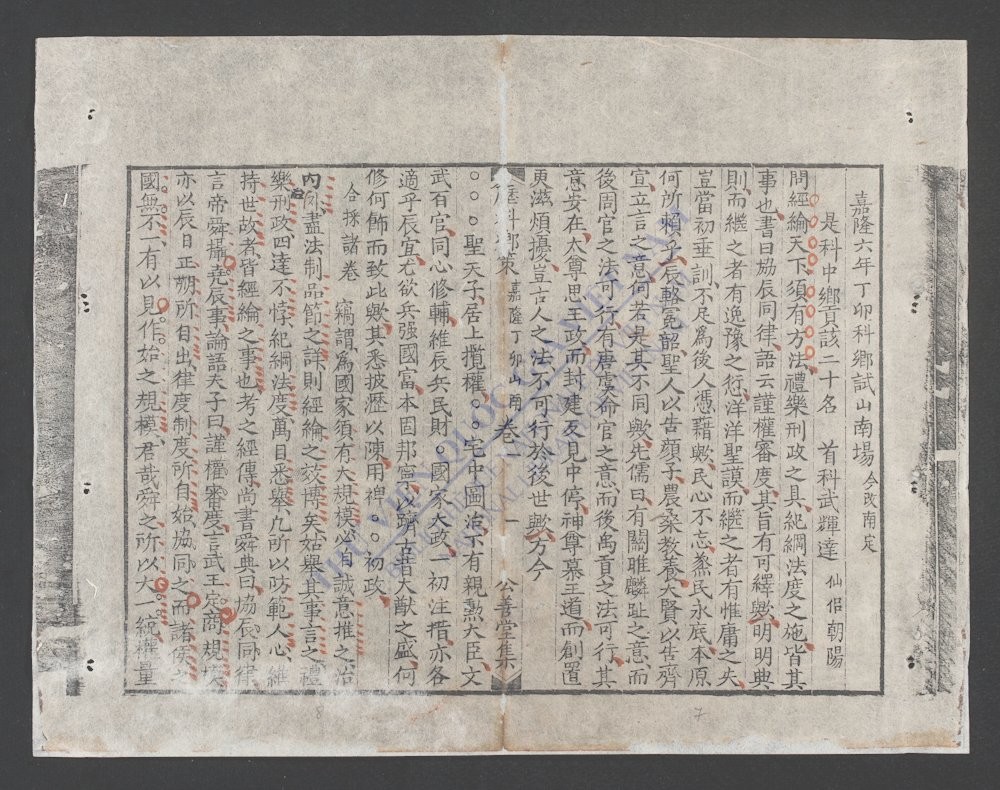 嘉隆六年丁卯科鄉試山南場今改南定
是科中鄉貢該二十名　首科武輝達仙侶朝陽
問經綸天下須有方法禮樂刑政之具紀綱法度之施皆其
事也書曰協辰同律語云謹權審度其旨有可繹歟明明典
則而繼之者有逸豫之愆洋洋聖謨而繼之者有惟庸之失
豈當初垂訓不足爲後人憑藉歟民心不忘烝民永底本原
何所賴乎辰輅冕韶聖人以告顏子農桑教養大賢以告齊
宣立言之意何若是其不同歟先儒曰有關雎麟趾之意而
後周官之法可行有唐虞命官之意而後禹貢之法可行其
意安在大尊思王政而封建反見中停神尊慕王道而創置
更滋煩擾豈古人之法不可行於後世歟方今
科鄉策　嘉隆丁卯山南　卷一　公善堂集
聖天子居上攬權宅中圖治下有親勲大臣文
武百官同心修輔維辰兵民財國家大政一初注措亦各
適乎辰宜尤欲兵强國富本固邦寧以躋古昔大猷之盛何
修何飾而致此歟其悉披瀝以陳用裨初政
合採諸卷　竊謂爲國家須有大規模必自誠意推之治
內　盡法制品節之詳則經綸之效博矣姑舉其事言之禮
樂刑政四達不悖紀綱法度萬目悉舉九所以防範人心維
持世故者皆經綸之事也考之經傳尚書舜典曰協辰同律
言帝舜攝堯辰事論語夫子曰謹權審度言武王定商規模
亦以辰日正朔所自出律度制度所自始協同之而諸侯之
國無不一有以見作始之規模君哉舜之所以大一統權量
7
8
THU VIEN QUOC GIA VIET NAM
NATIONAL LIBRARY OF VIETNAM